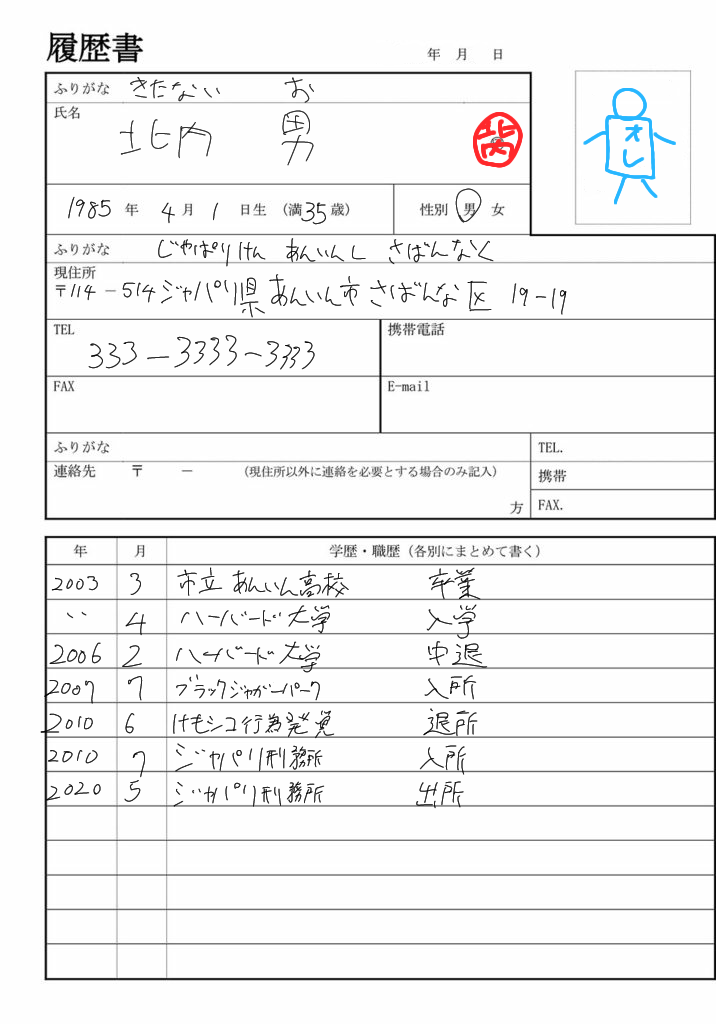 履歴書
年 月 日
ふりがな きたない お
氏名
北内 男
1985 年 4 月 1 日生 (満35歳) 性別 男 女
オレ
ふりがな じゃぱりけん あんいんし さばんなく
現住所
〒114-514 ジャパリ県 あんいん市 さばんな区 19-19
TEL 携帯電話
333-3333-3333
FAX E-mail
ふりがな TEL.
連絡先 〒 - (現住所以外に連絡を必要とする場合のみ記入) 携帯
方 FAX.
年 月 学歴・職歴(各別にまとめて書く)
2003 3 市立 あんいん高校 卒業
〃 4 ハーバード大学 入学
2006 2 ハーバード大学 中退
2007 7 ブラックジャガーパーク 入所
2010 6 けもシコ行為発覚 退所
2010 7 ジャパリ刑務所 入所
2020 5 ジャパリ刑務所 出所